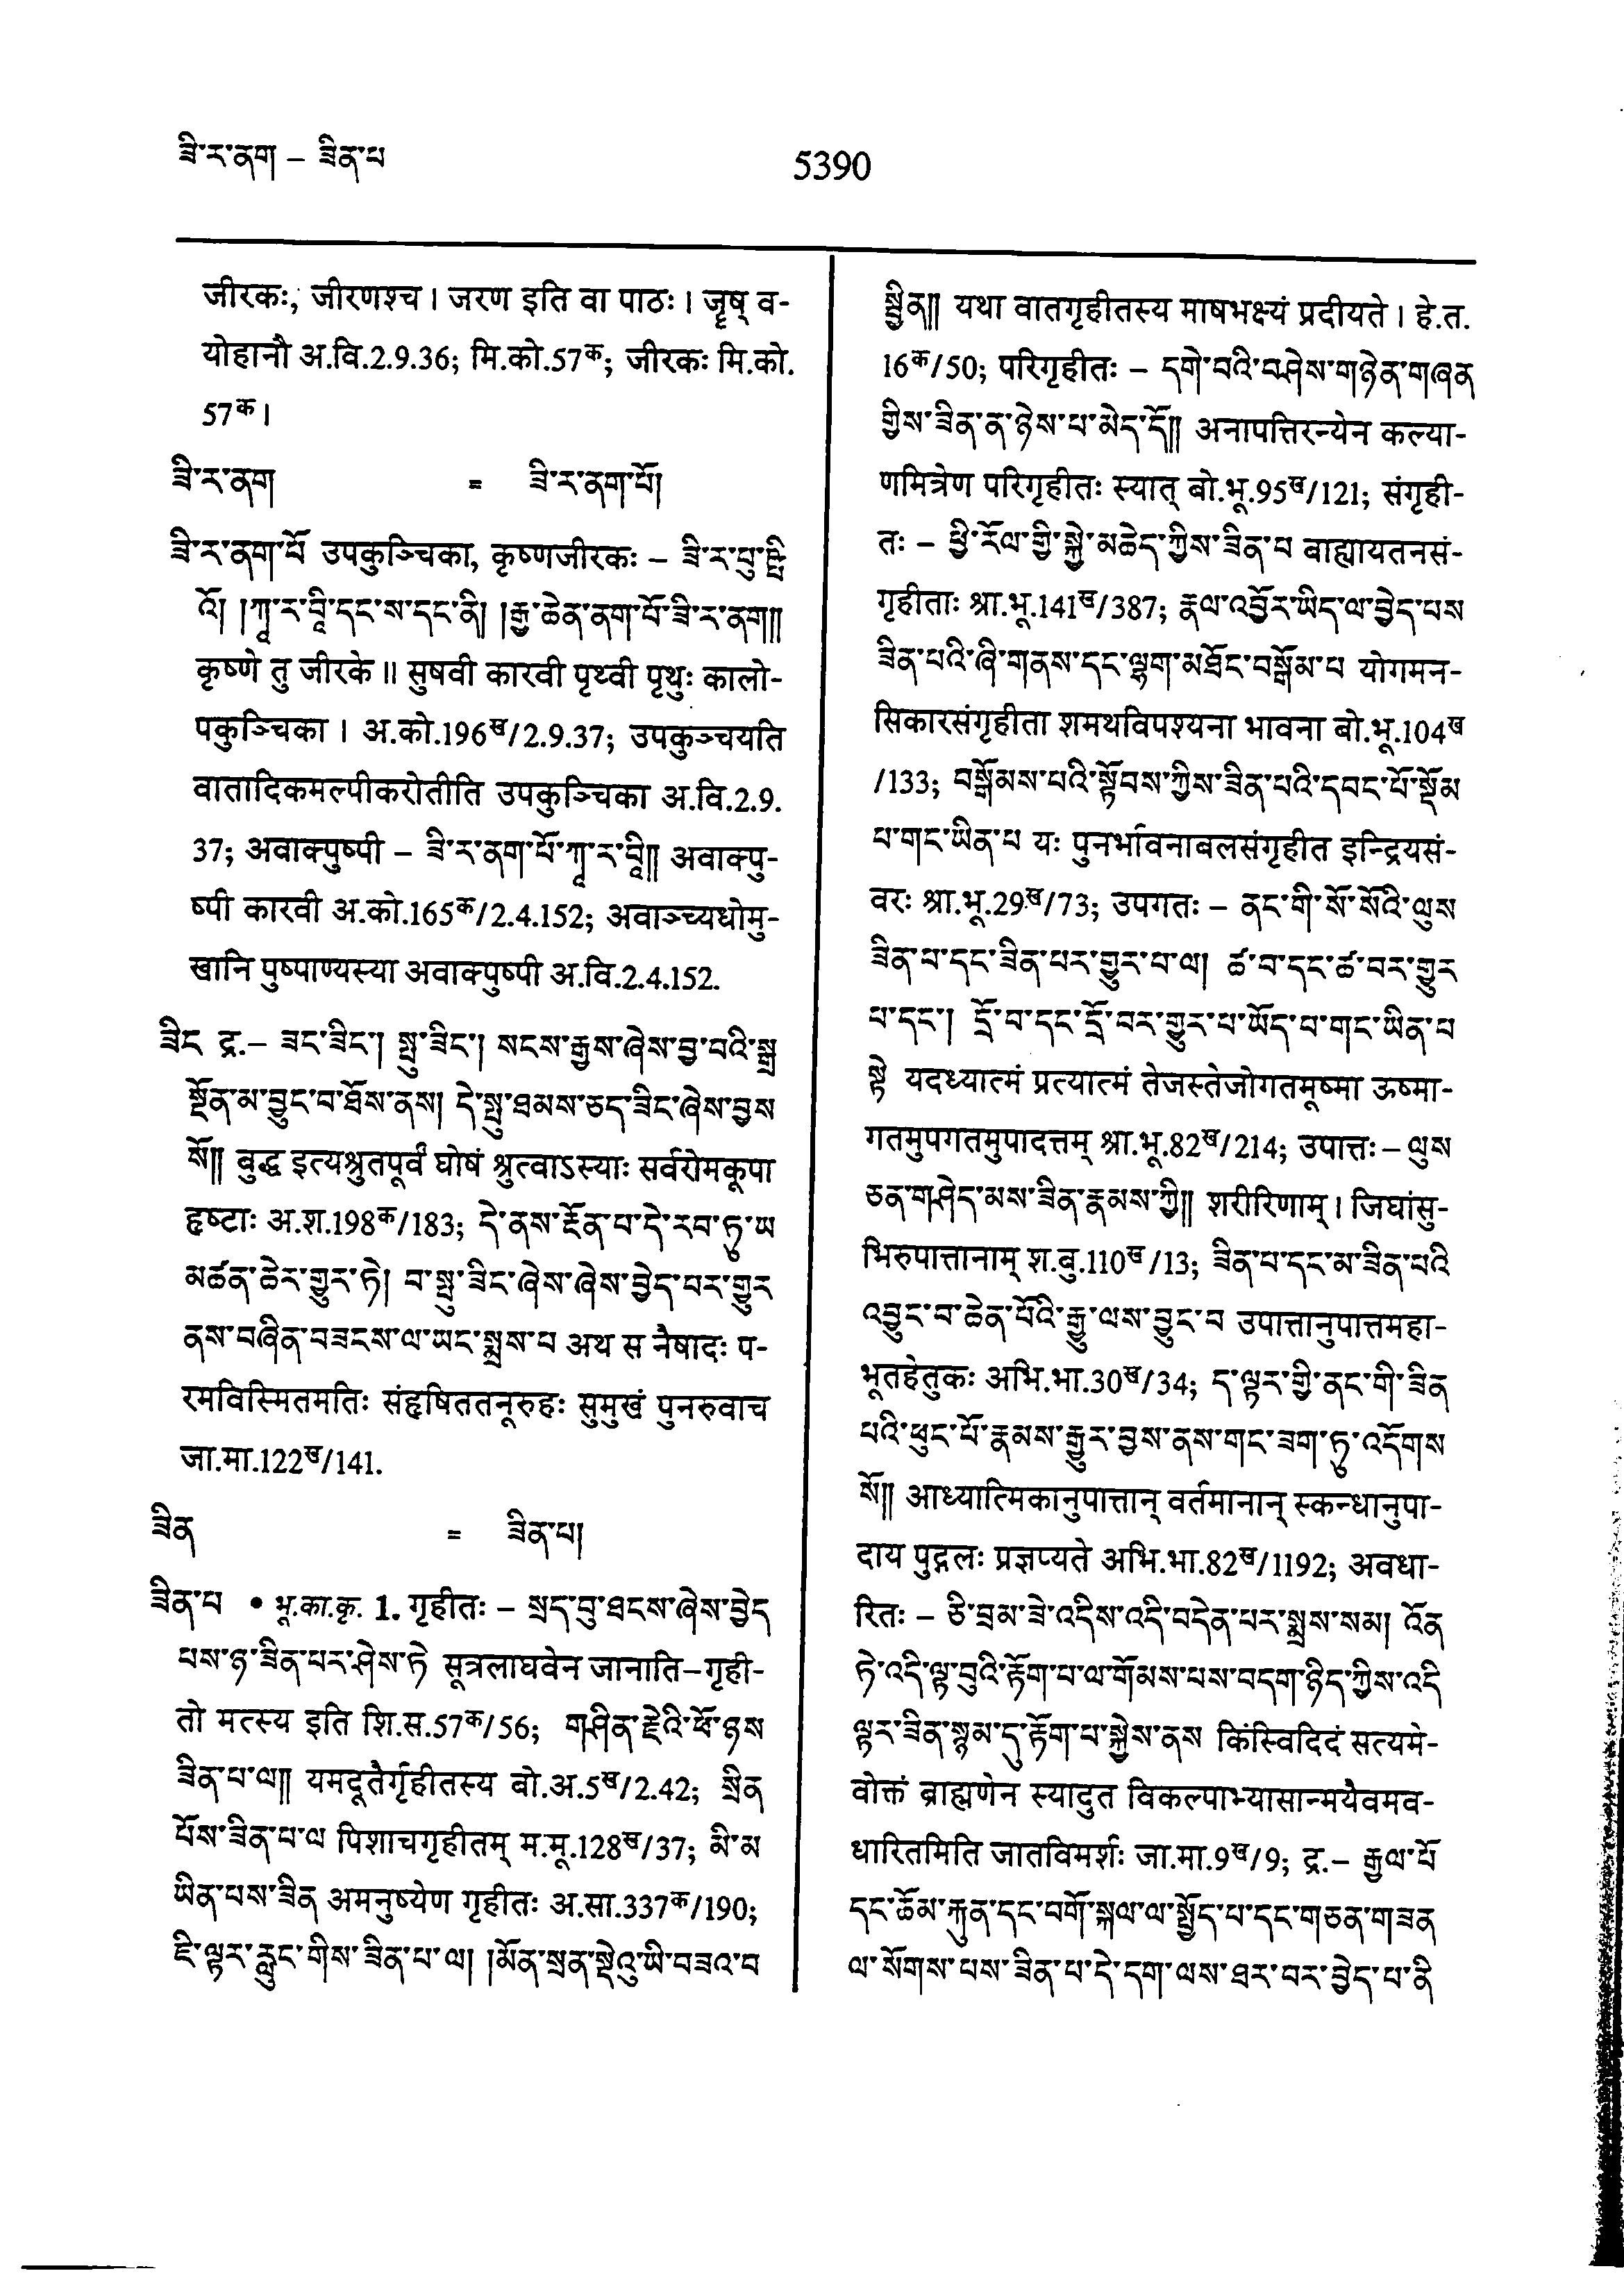 ཟི་ར་ནག – ཟིན་པ
5390
जीरकः, जीरणश्च। जरण इति वा पाठः। जॄष् व-
योहानौ अ.वि.2.9.36; मि.को.57क; जीरकः मि.को.
57क।
ཟི་ར་ནག = ཟི་ར་ནག་པོ།
ཟི་ར་ནག་པོ उपकुञ्चिका, कृष्णजीरकः – ཟི་ར་པུ་ཥྤི
འོ། །ཀཱ་ར་བཱི་དང་ས་དང་ནི། །རྒྱ་ཆེན་ནག་པོ་ཟི་ར་ནག།།
कृष्णे तु जीरके॥ सुषवी कारवी पृथ्वी पृथुः कालो-
पकुञ्चिका। अ.को.196ख/2.9.37; उपकुञ्चयति
वातादिकमल्पीकरोतीति उपकुञ्चिका अ.वि.2.9.
37; अवाक्पुष्पी – ཟི་ར་ནག་པོ་ཀཱ་ར་བཱི།། अवाक्पु-
ष्पी कारवी अ.को.165क/2.4.152; अवाञ्च्यधोमु-
खानि पुष्पाण्यस्या अवाक्पुष्पी अ.वि.2.4.152.
ཟིང द्र.– ཟང་ཟིང་། སྤུ་ཟིང་། སངས་རྒྱས་ཞེས་བྱ་བའི་སྒྲ
སྔོན་མ་བྱུང་བ་ཐོས་ནས། དེ་སྤུ་ཐམས་ཅད་ཟིང་ཞེས་བྱས
སོ།། बुद्ध इत्यश्रुतपूर्वं घोषं श्रुत्वाऽस्याः सर्वरोमकूपा
हृष्टाः अ.श.198क/183; དེ་ནས་རྔོན་པ་དེ་རབ་ཏུ་ཡ
མཚན་ཆེར་གྱུར་ཏེ། བ་སྤུ་ཟིང་ཞེས་ཞེས་བྱེད་པར་གྱུར
ནས་བཞིན་བཟངས་ལ་ཡང་སྨྲས་པ अथ स नैषादः प-
रमविस्मितमतिः संहृषिततनूरुहः सुमुखं पुनरुवाच
जा.मा.122ख/141.
ཟིན = ཟིན་པ།
ཟིན་པ • भू.का.कृ. 1. गृहीतः – སྲད་བུ་ཐངས་ཞེས་བྱེད
པས་ཉ་ཟིན་པར་ཤེས་ཏེ सूत्रलाघवेन जानाति–गृही-
तो मत्स्य इति शि.स.57क/56; གཤིན་རྗེའི་ཕོ་ཉས
ཟིན་པ་ལ།། यमदूतैर्गृहीतस्य बो.अ.5ख/2.42; སྲིན
པོས་ཟིན་པ་ལ पिशाचगृहीतम् म.मू.128ख/37; མི་མ
ཡིན་པས་ཟིན अमनुष्येण गृहीतः अ.सा.337क/190;
ཇི་ལྟར་རླུང་གིས་ཟིན་པ་ལ། །མོན་སྲན་སྡེའུ་ཡི་བཟའ་བ
སྦྱིན།། यथा वातगृहीतस्य माषभक्ष्यं प्रदीयते। हे.त.
16क/50; परिगृहीतः – དགེ་བའི་བཤེས་གཉེན་གཞན
གྱིས་ཟིན་ན་ཉེས་པ་མེད་དོ།། अनापत्तिरन्येन कल्या-
णमित्रेण परिगृहीतः स्यात् बो.भू.95ख/121; संगृही-
तः – ཕྱི་རོལ་གྱི་སྐྱེ་མཆེད་ཀྱིས་ཟིན་པ बाह्यायतनसं-
गृहीताः श्रा.भू.141ख/387; རྣལ་འབྱོར་ཡིད་ལ་བྱེད་པས
ཟིན་པའི་ཞི་གནས་དང་ལྷག་མཐོང་བསྒོམ་པ योगमन-
सिकारसंगृहीता शमथविपश्यना भावना बो.भू.104ख
/133; བསྒོམས་པའི་སྟོབས་ཀྱིས་ཟིན་པའི་དབང་པོ་སྡོམ
པ་གང་ཡིན་པ यः पुनर्भावनाबलसंगृहीत इन्द्रियसं-
वरः श्रा.भू.29ख/73; उपगतः – ནང་གི་སོ་སོའི་ལུས
ཟིན་པ་དང་ཟིན་པར་གྱུར་པ་ལ། ཚ་བ་དང་ཚ་བར་གྱུར
པ་དང་། དྲོ་བ་དང་དྲོ་བར་གྱུར་པ་ཡོད་པ་གང་ཡིན་པ
སྟེ यदध्यात्मं प्रत्यात्मं तेजस्तेजोगतमूष्मा ऊष्मा-
गतमुपगतमुपादत्तम् श्रा.भू.82ख/214; उपात्तः – ལུས
ཅན་གཤེད་མས་ཟིན་རྣམས་ཀྱི།། शरीरिणाम्। जिघांसु-
भिरुपात्तानाम् श.बु.110ख/13; ཟིན་པ་དང་མ་ཟིན་པའི
འབྱུང་བ་ཆེན་པོའི་རྒྱུ་ལས་བྱུང་བ उपात्तानुपात्तमहा-
भूतहेतुकः अभि.भा.30ख/34; ད་ལྟར་གྱི་ནང་གི་ཟིན
པའི་ཕུང་པོ་རྣམས་རྒྱུར་བྱས་ནས་གང་ཟག་ཏུ་འདོགས
སོ།། आध्यात्मिकानुपात्तान् वर्तमानान् स्कन्धानुपा-
दाय पुद्गलः प्रज्ञप्यते अभि.भा.82ख/1192; अवधा-
रितः – ཅི་བྲམ་ཟེ་འདིས་འདི་བདེན་པར་སྨྲས་སམ། འོན
ཏེ་འདི་ལྟ་བུའི་རྟོག་པ་ལ་གོམས་པས་བདག་ཉིད་ཀྱིས་འདི
ལྟར་ཟིན་སྙམ་དུ་རྟོག་པ་སྐྱེས་ནས किंस्विदिदं सत्यमे-
वोक्तं ब्राह्मणेन स्यादुत विकल्पाभ्यासान्मयैवमव-
धारितमिति जातविमर्शः जा.मा.9ख/9; द्र.– རྒྱལ་པོ
དང་ཆོམ་རྐུན་དང་བགོ་སྐལ་ལ་སྤྱོད་པ་དང་གཅན་གཟན
ལ་སོགས་པས་ཟིན་པ་དེ་དག་ལས་ཐར་བར་བྱེད་པ་ནི